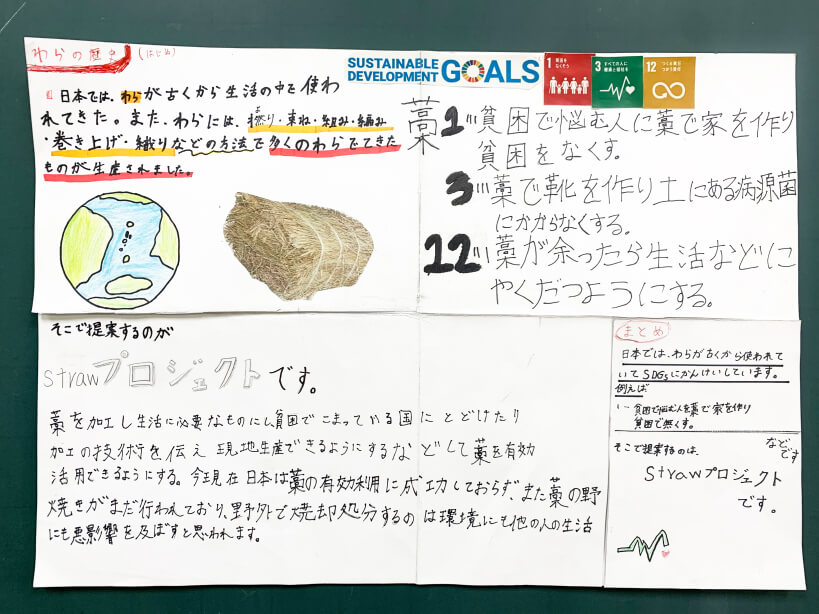 わらの歴史(はじめ)
日本では、わらが古くから生活の中を使わ
れてきた。また、わらには、撚り・束ね・組み・編み
・巻き上げ・織りなどの方法で多くのわらでてきた
ものが生産されました。
SUSTAINABLE
DEVELOPMENT GOALS
1 貧困を
なくそう
3 すべての人に
健康と福祉を
12 つくる責任
つかう責任
藁
1…貧困で悩む人に藁で家を作り
貧困をなくす。
3…藁で靴を作り土にある病源菌
にかからなくする。
12…藁が余ったら生活などに
やくだつようにする。
そこで提案するのが
strawプロジェクトです。
藁を加工し生活に必要なものにし貧困でこまっている国にとどけたり
加工の技術を伝え現地生産できるようにするなどして藁を有効
活用できるようにする。今現在日本は藁の有効利用に成功しておらず、また藁の野
焼きがまだ行われており、野外で焼却処分するのは環境にも他の人の生活
にも悪影響を及ぼすと思われます。
まとめ
日本では、わらが古くから使われて
いてSDGsにかんけいしています。
例えば
1…貧困で悩む人を藁で家を作り
貧困で無くす。
などです
そこで提案するのは、
strawプロジェクト
です。